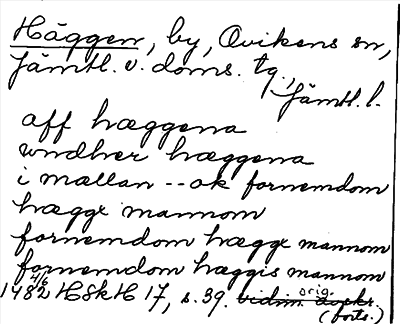 Häggen, by, Ovikens sn,
Jämtl. v. doms. tg.,
Jämtl. l.
aff hæggena
wndher hæggena
i mællan -- ok fornemdom
hægge mannom
fornemdom hægge mannom
fornemdom hæggis mannom
1482 4/6 HSkH 17, s. 39. vidim. orig. avskr.
(forts.)